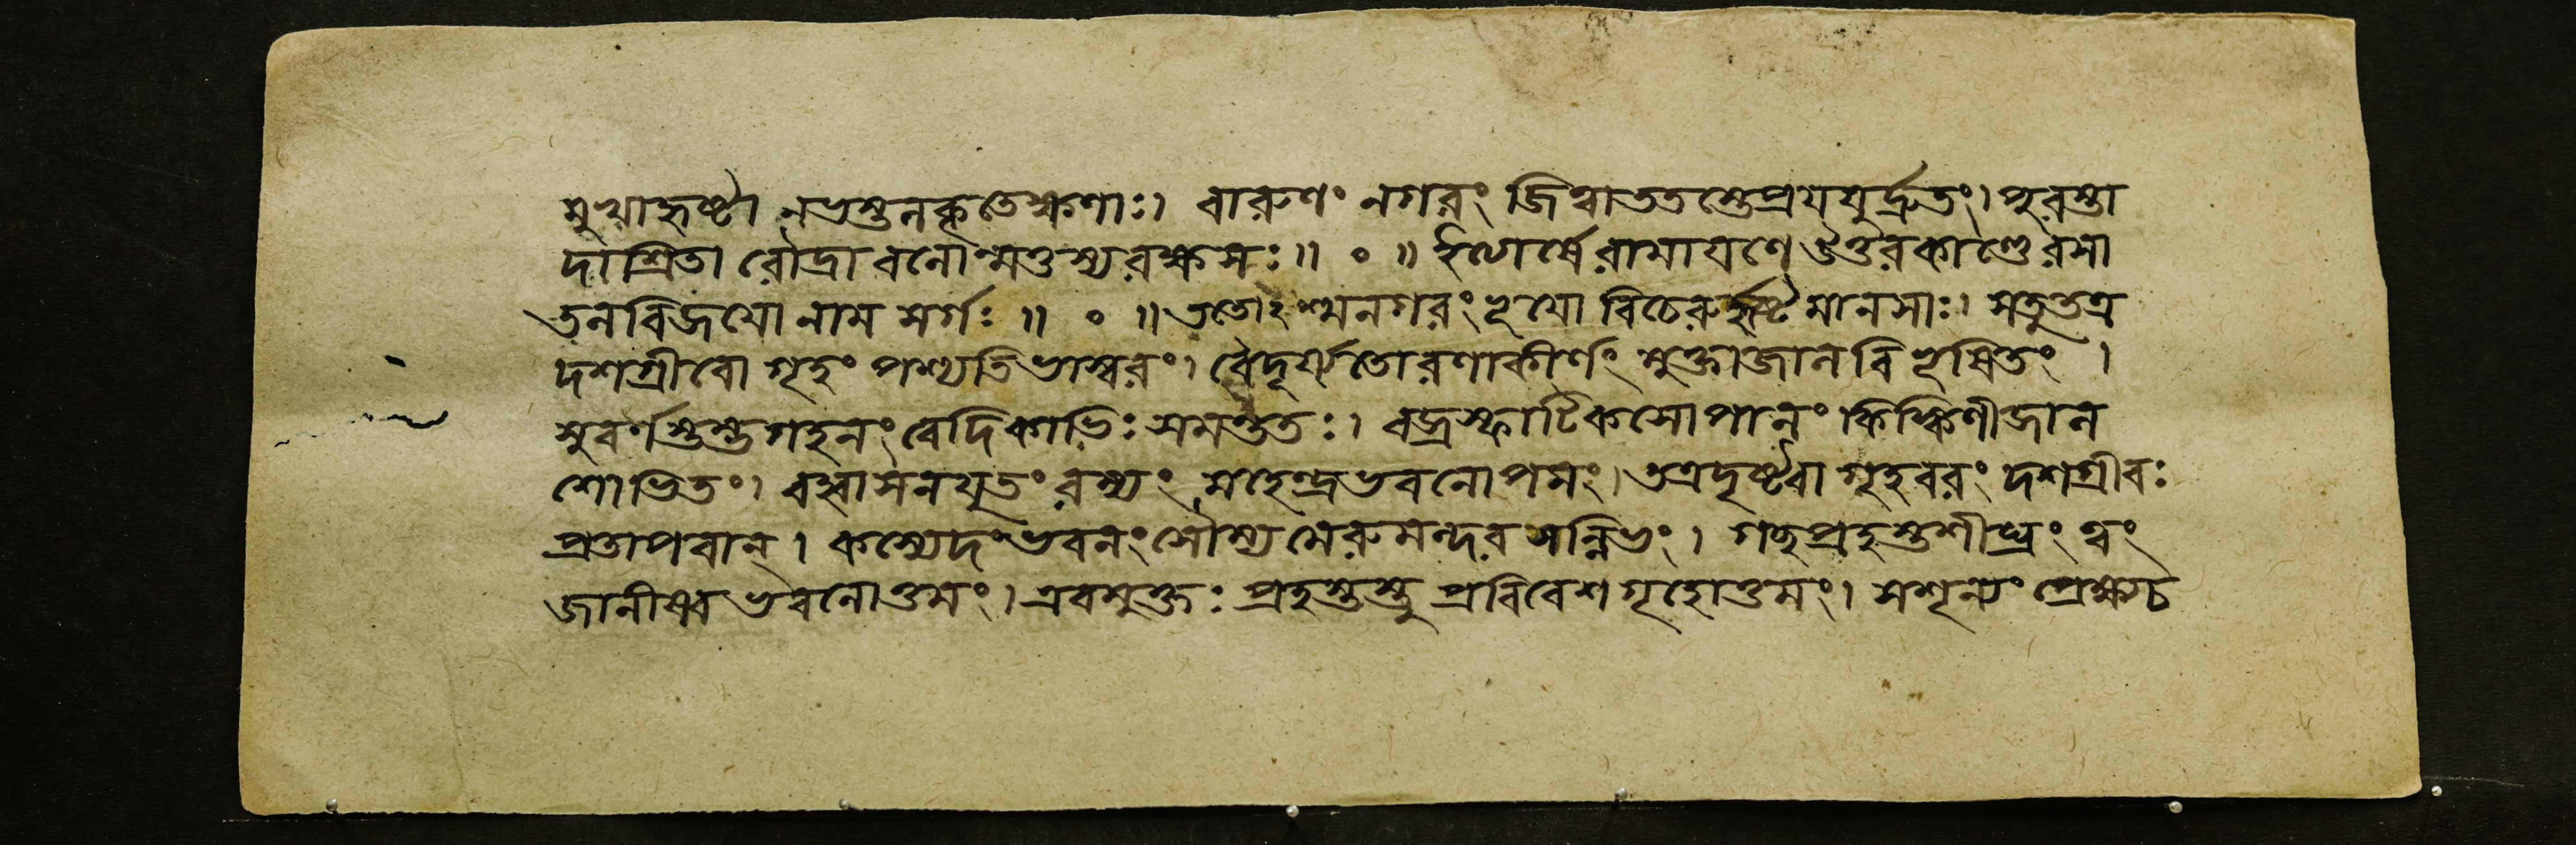 মুখাহৃষ্টা নভস্তলকৃতেক্ষণাঃ। বারুণং নগরং জিত্বাততস্তেপ্রযযুর্দ্রুতং। পুরস্তা
দাশ্রিতা রৌদ্রা বলোন্মত্তস্যরক্ষসঃ॥ ০ ॥ ইত্যার্ষেরামাযণে উত্তরকাণ্ডেরসা
তলবিজযো নাম সর্গঃ ॥ ০ ॥ ততোঽশ্মনগরংভূযো বিচেরুর্হৃষ্টমানসাঃ। সতুতত্র
দশগ্রীবো গৃহং পশ্যতিভাস্বরং। বৈদূর্য্যতোরণাকীর্ণং মুক্তাজালবিভূষিতং ।
সুবর্ণস্তম্ভগহনং বেদিকাভিঃ সমন্ততঃ। বজ্রস্ফাটিকসোপানং কিঙ্কিণীজাল
শোভিতং। বহ্বাসনযুতং রম্যং মহেন্দ্রভবনোপমং। তত্রদৃষ্ট্বা গৃহবরং দশগ্রীবঃ
প্রতাপবান্। কস্যেদং ভবনং সৌম্য মেরুমন্দরসন্নিভং। গচ্ছপ্রহস্তশীঘ্রং ত্বং
জানীষ্ব ভবনোত্তমং। এবমুক্তঃ প্রহস্তস্তু প্রবিবেশ গৃহোত্তমং। সশূন্যং প্রেক্ষ্যচ